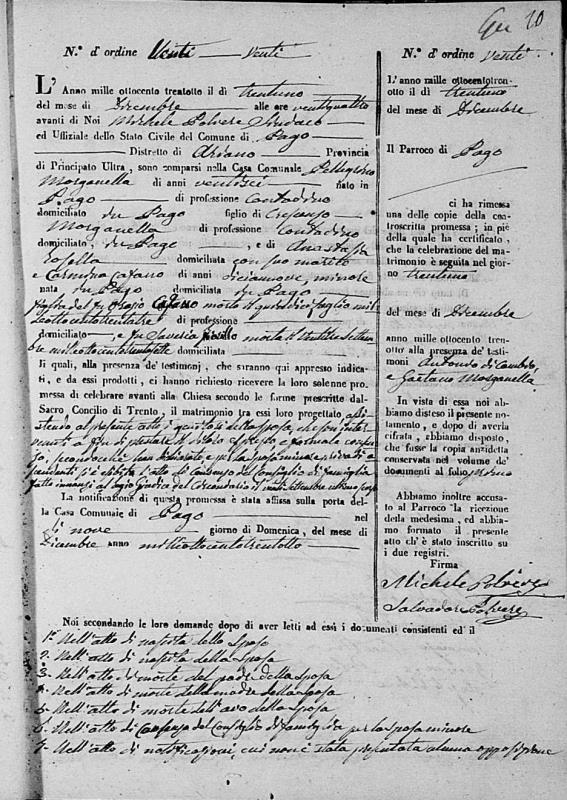 20
N.° d'ordine Venti venti
L'Anno mille ottocento trentotto il dì trentuno
del mese di Decembre alle ore ventiquattro
avanti di Noi Michele Polvere Sindaco
ed Uffiziale dello Stato Civile del Comune di Pago
Distretto di Ariano Provincia
di Principato Ultra, sono comparsi nella Casa Comunale Pellegrino
Morganella di anni ventisei nato in
Pago di professione contadino
domiciliato in Pago figlio di Crescenzo
Morganella di professione contadino
domiciliato, in Pago e di Anastasia
domiciliata con suo marito
e Carmina Catano di anni diciannove minore
nata in Pago domiciliata in Pago
figlia del fu Orazio Catano morto il quindici Luglio mil
leottocentotrentatre di professione
domiciliato e fu Saveria morta il settem
bre milleottocentotrentasette domiciliata
li quali, alla presenza de' testimonj, che saranno qui appresso indica-
ti, e da essi prodotti, ci hanno richiesto ricevere la loro solenne pro-
messa di celebrare avanti alla Chiesa secondo le forme prescritte dal
Sacro Concilio di Trento, il matrimonio tra essi loro progettato
al presente atto della sposa, che son inter
venuti a fin di prestare il loro espresso e formale consen
so, e per la sposa minore
l'atto di consenso del Consiglio di famiglia
fatto innanzi al Regio Giudice del Circondario
La notificazione di questa promessa è stata affissa sulla porta del-
la Casa Comunale di Pago nel
dì nove giorno di Domenica, del mese di
Dicembre anno milleottocentotrentotto
N.° d'ordine venti
L'anno mille ottocentotren-
totto il dì trentuno
del mese di Decembre
Il Parroco di Pago
ci ha rimessa
una delle copie della con-
troscritta promessa; in piè
della quale ha certificato,
che la celebrazione del ma-
trimonio è seguita nel gior-
no trentuno
del mese di Decembre
anno mille ottocento tren-
totto alla presenza de' testi-
moni Antonio
e Gaetano Morganella
In vista di essa noi ab-
biamo disteso il presente no-
tamento, e dopo di averla
cifrata, abbiamo disposto,
che fusse la copia anzidetta
conservata nel volume de'
documenti al foglio primo
Abbiamo inoltre accusa-
to al Parroco la ricezione
della medesima, ed abbia-
mo formato il presente
atto ch'è stato inscritto su
i due registri.
Firma
Michele Polvere
Salvadore Polvere
Noi secondando le loro domande dopo di aver letti ad essi i documenti consistenti ed il
1.° Nell'atto di nascita dello Sposo
2. Nell'atto di nascita della Sposa
3. Nell'atto di morte del padre della sposa
4. Nell'atto di morte della madre della sposa
5. Nell'atto di morte dell'avo della sposa
6. Nell'atto di Consenso del Consiglio di famiglia per la sposa minore
7. Nell'atto di notificazioni, cui non è stata presentata alcuna opposizione